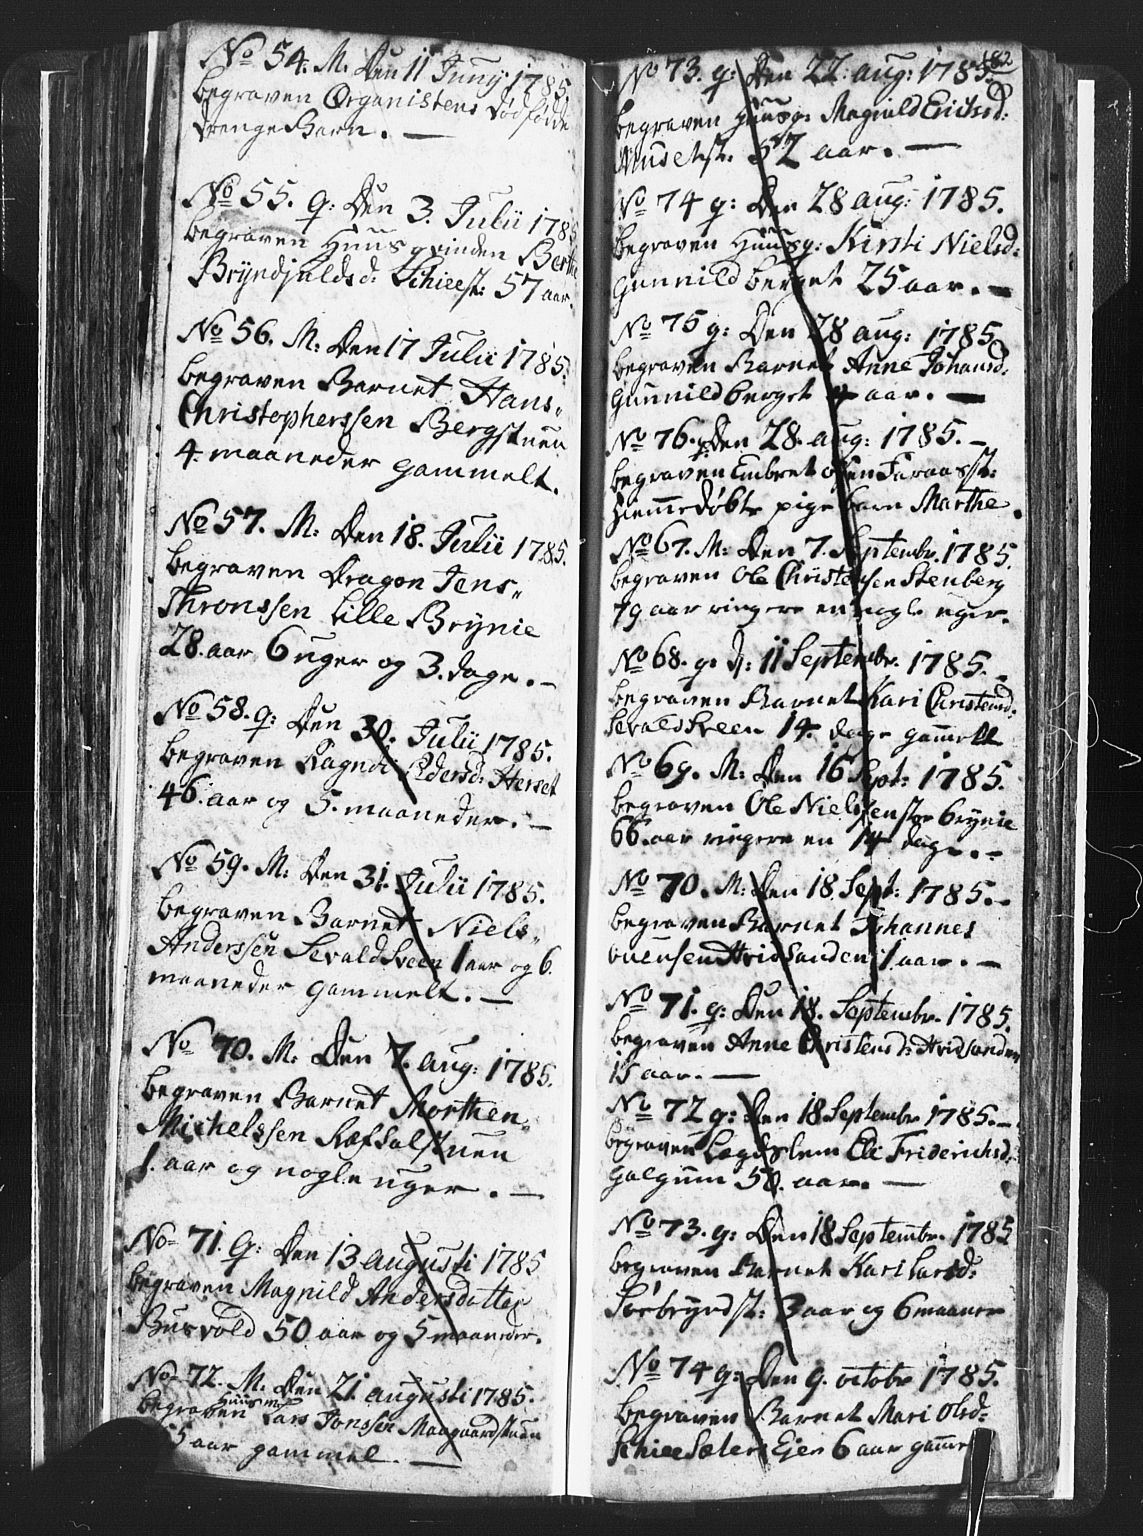 No 54. M. Den 11 Juny 1785.
begraven Organistens dødfødde
drenge Barn.
No 55. q: Den 3. Julii 1785
begraven Huusqvinden Berthe
Bryndjuldsd: Schieest: 57 aar.
No 56. M: Den 17 Julii 1785.
begraven Barnet Hans
Christopherssen Bergstuen
4 maaneder gammelt.
No 57. M: Den 18. Julii 1785.
begraven Dragon Jens
Thronssen Lille Brynie
28. aar 6 uger og 3. dage.
No 58. q: Den 30. Julii 1785.
begraven Ragndi Pedersd: Herset
46. aar og 5. maaneder.
No 59. M: Den 31. Julii 1785.
begraven Barnet Niels
Anderssen Sevald Sveen 1 aar og 6
maaneder gammelt.
No 70. M. Den 7. aug: 1785.
begraven Barnet Morthen
Michelssen Ræfsalstuen
1. aar og nogle uger.
No 71. q: Den 13 augusti 1785
begraven Magnild Andersdatter
Busvold 50 aar og 5 maaneder.
No 72. M. Den 21 augusti 1785.
begraven Huusm: Lars Jonssen Maagaardstuen
aar gammel.
182
No 73. q: Den 22. aug: 1785.
begraven Huusq: Magnild Ericksd:
52 aar.
No 74 q: Den 28 aug: 1785.
begraven Huusq: Kirsti Nielsd:
Gunnildberget 25 aar.
No 75 q: Den 28 aug: 1785.
begraven Barnet Anne Johansd:
Gunnildberget 4 aar.
No 76. q Den 28. aug: 1785.
begraven Embret Olsen Faraasst:
hiemmedøbte pigebarn Marthe.
No 67. M: Den 7. Septembr. 1785.
begraven Ole Christensen Stenberg
79 aar ringere en nogle uger.
No 68. q. d: 11 Septembr. 1785.
begraven Barnet Kari Christensd:
Sevald Sveen 14. dage gammelt
No 69. M: Den 16 Sept: 1785.
begraven Ole Nielssen stor Brynie
66. aar ringere en 14 dage.
No 70. M: Den 18 Sept: 1785.
begraven Barnet Johannes
Ouensen Hvidsanden 1 aar.
No 71. q: Den 18. Septembr. 1785.
begraven Anne Christensd: Hvidsanden
15 aar.
No 72 q: Den 18 Septembr 1785.
begraven Lægdslem Eli Friderichsd:
Galguum 50. aar.
No 73. q: Den 18 Septembr. 1785
begraven Barnet Kari Larsd:
Sørbryndst: 3 aar og 6 maaner
No 74 q: Den 9. octobr 1785.
begraven Barnet Mari Olsd:
Schiee Sæters Ejer 6 aar